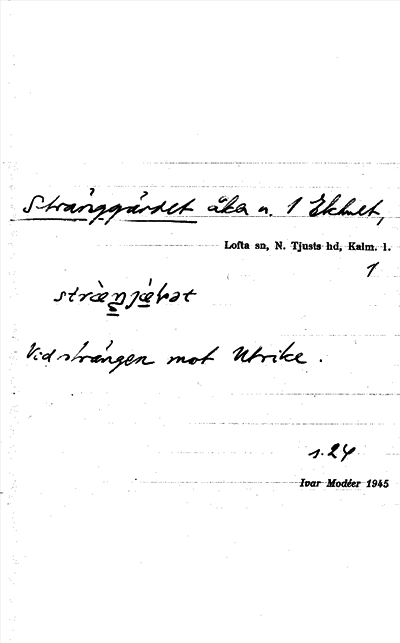 Stränggärdet åker n. 1 Ekhult,
Lofta sn, N. Tjusts hd, Kalm. l.
1
Vid strängen mot Utrike.
s. 24
Ivar Modéer 1945